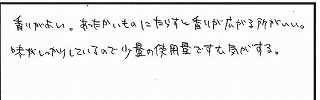 香りがよい。あたたかいものにたらすと香りが広がる所がいい。
味がしっかりしているので少量の使用量ですむ気がする。